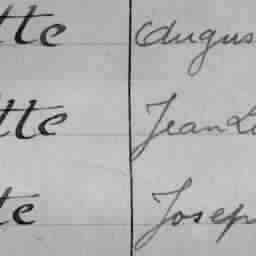 tte Augus
tte Jean Lo
te Josep